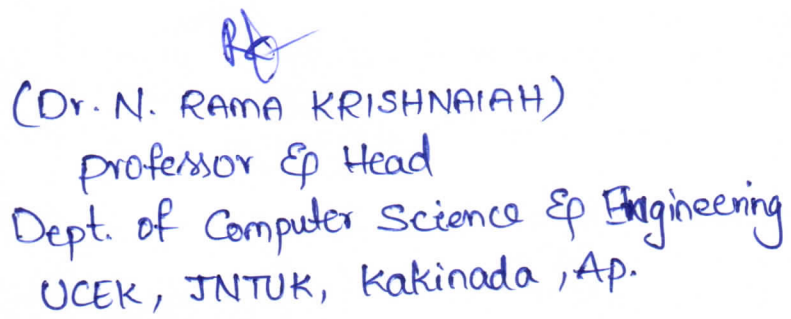 (Dr. N. RAMA KRISHNAIAH)
Professor & Head
Dept. of Computer Science & Engineering
UCEK, JNTUK, Kakinada, Ap.